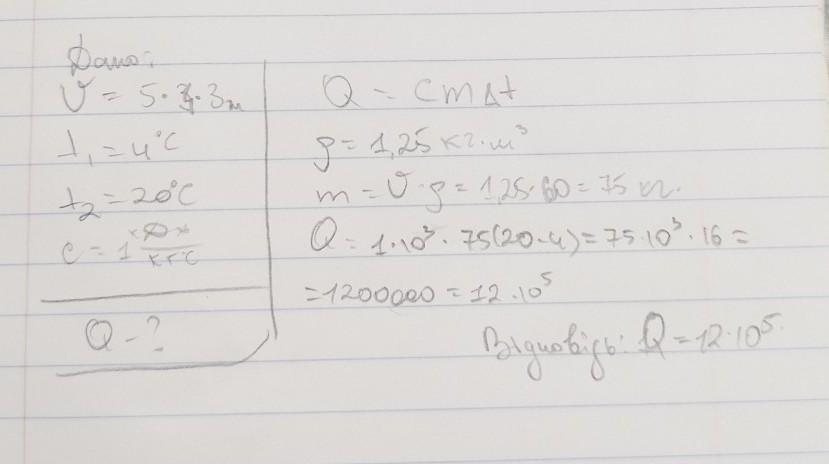 Дано:
V = 5·4·3 м
t₁ = 4°C
t₂ = 20°C
c = 1 кДж/кг°C
Q - ?
Q = cmΔt
ρ = 1,25 кг·м³
m = V·ρ = 1,25·60 = 75 кг.
Q = 1·10³ · 75(20-4) = 75·10³ · 16 =
= 1200000 = 12·10⁵
Відповідь: Q = 12·10⁵.